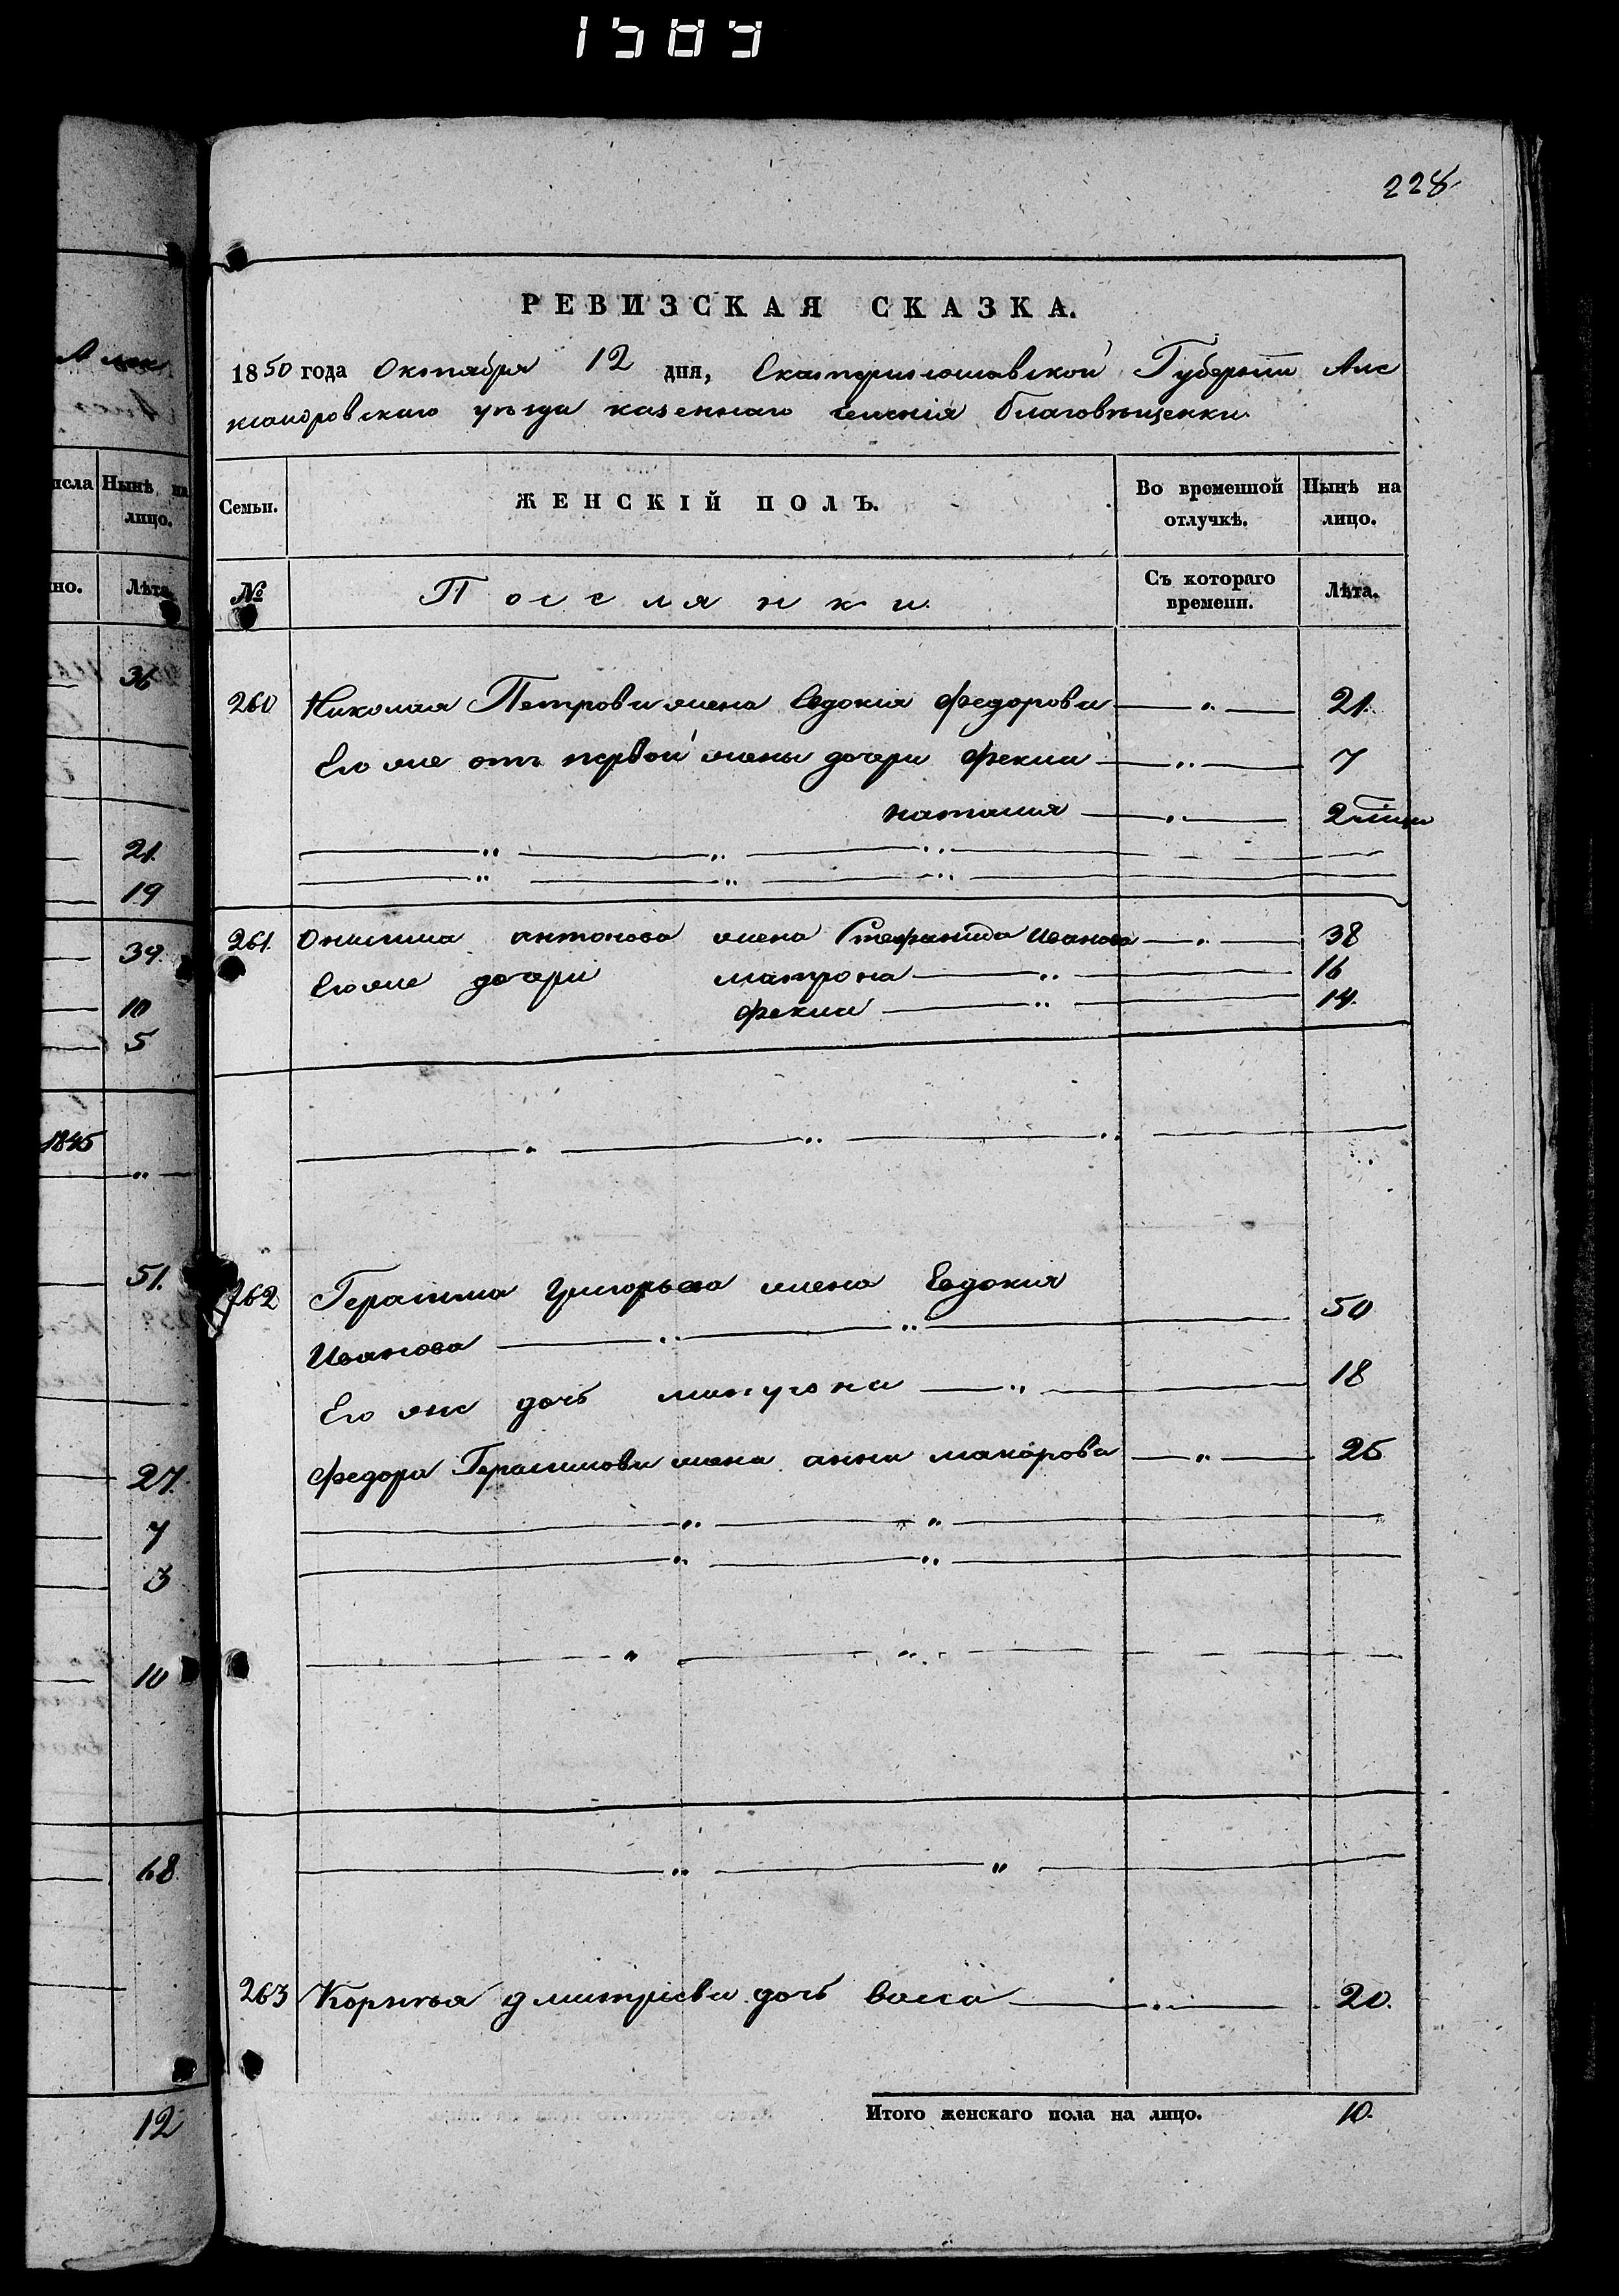 1589
228
РЕВИЗСКАЯ СКАЗКА.
1850 года Октября 12 дня, Екатеринославской Губернiи Але
ксандровскаго уѣзда казеннаго селенiя благовѣщенки
Семьи. ЖЕНСКIЙ ПОЛЪ. Во временной отлучкѣ. Нынѣ на лицо.
№ Поселянки Съ котораго времени. Лѣта.
260 Николая Петрова жена Евдокия Федорова — " — 21.
Его же отъ первой жены дочери Фекла — " — 7
наталия — " — 2
261. Онисима антонова жена Стефанида иванова — " — 38
Его же дочери матрона — " — 16
фекла — " — 14.
262 Герасима Григорьева жена Евдокия
Иванова — " — " — 50
Его же дочь — " — 18
Федора Герасимова жена анна макарова — " — 25
263 Корнея дмитрiева дочь васса — " — 20.
Итого женскаго пола на лицо. 10.
исла Нынѣ на
лицо.
но. Лѣта.
36
21.
19
39.
10
5
1845
51.
27.
7
3
10
68.
12